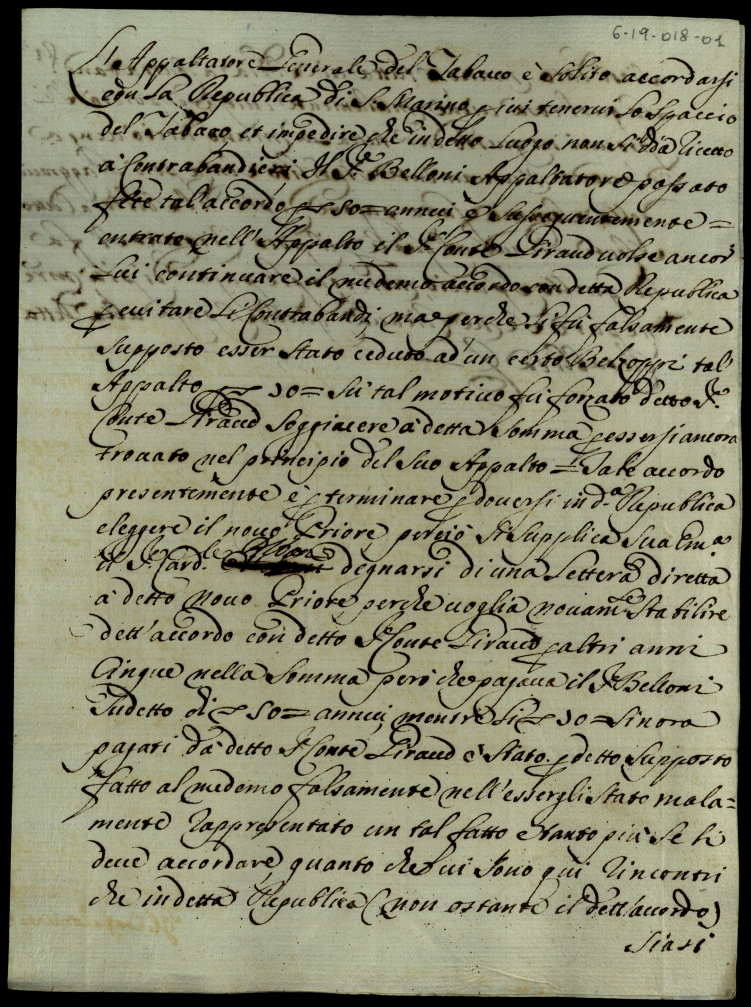 6-19-018-01
L'Appaltatore Generale del Tabaco è solito accordarsi
con la Republica di S. Marino p ivi tenervi lo Spaccio
del Tabaco, et impedire che in detto luogo non si dia ricetto
à Contrabandieri Il Sr Belloni Appaltatore passato
fece tal accordo p 50= annui e susseguentemente=
entrato nell'Appalto il Sr Conte Giraud volse ancor
lui continuare il medemo accordo con detta Republica
p evitare li Contrabandi; ma perche li fù falsamente
supposto esser stato ceduto ad'un certo Belzoppi tal'
Appalto p 70= sù tal motivo fù forzato detto Sr
Conte Giraud soggiacere à detta somma p essersi ancora
trovato nel principio del suo Appalto= Tale accordo
presentemente è p terminare p doversi in d.a Republica
eleggere il novo Priore perciò si supplica Sua Em.a
il Sr Card. degnarsi di una lettera diretta
à detto novo Priore perche voglia novam.te stabilire
dett'accordo con detto Sr Conte Giraud p altri anni
Cinque nella somma però che pagava il Sr Belloni
sudetto di 50= annui, mentre li 70= sinora
pagati dà detto Sr Conte Giraud è stato p detto supposto
fatto al medemo falsamente nell'essergli stato mala=
mente rappresentato un tal fatto e tanto più se li
deve accordare quanto che vi sono più rincontri
che in detta Republica (non ostante il dett'accordo)
siasi